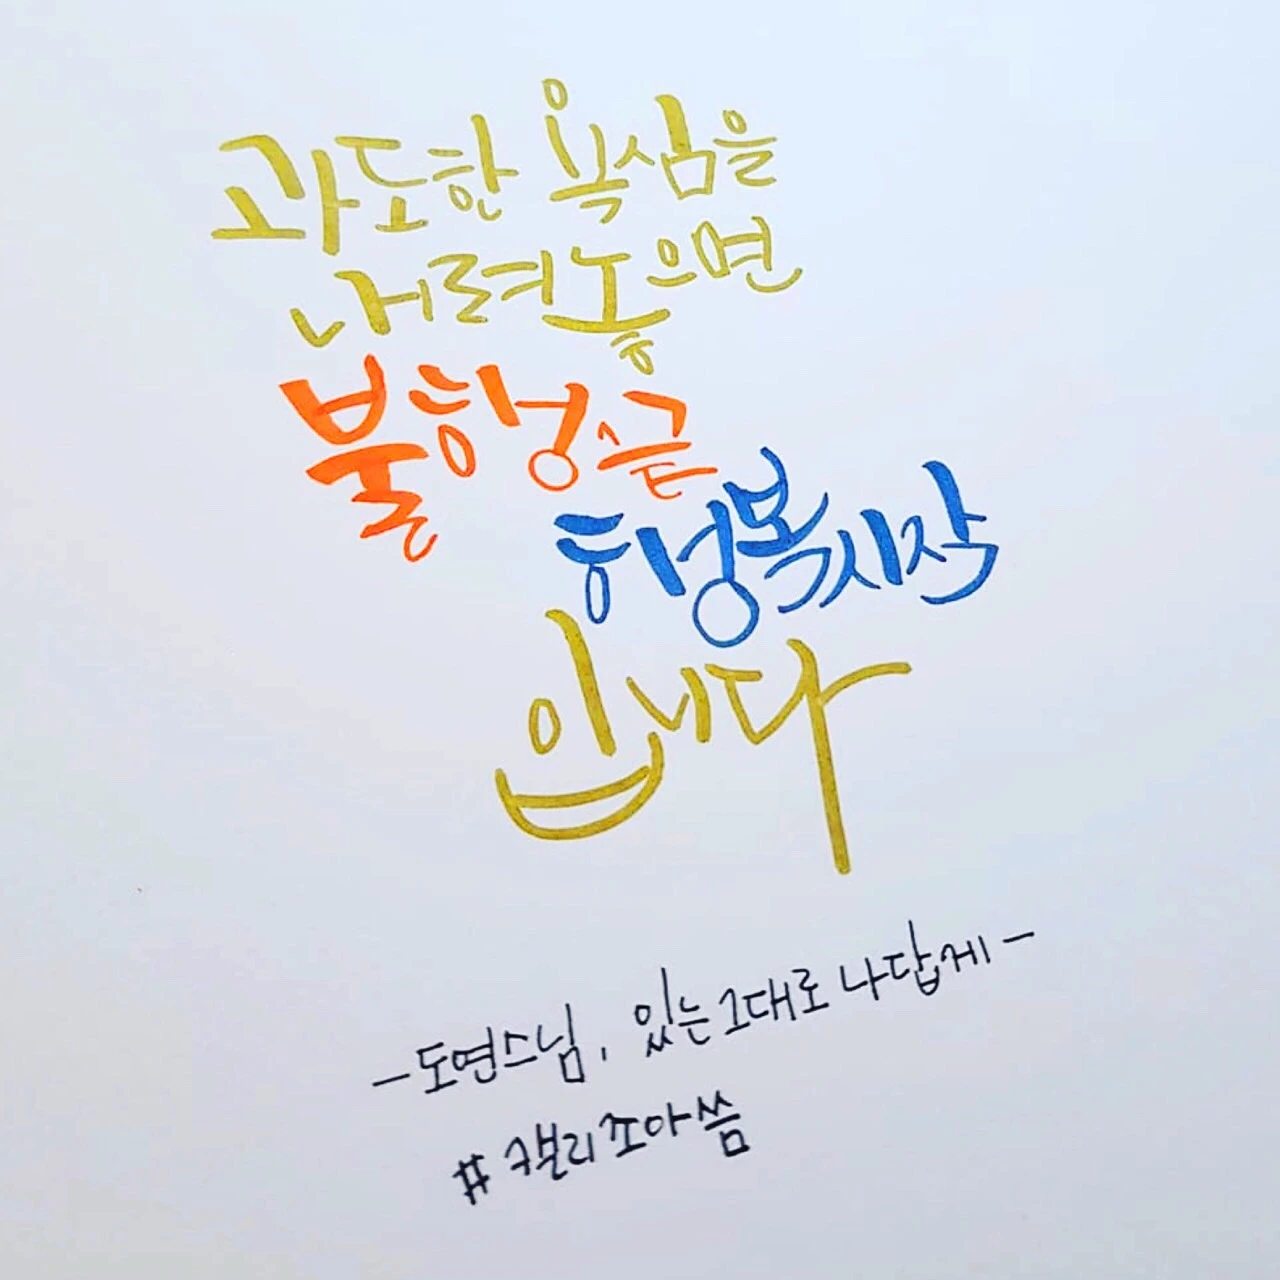 과도한 욕심을
내려놓으면
불행끝
행복시작
입니다
-도연스님, 있는그대로 나답게-
#캘리조아씀